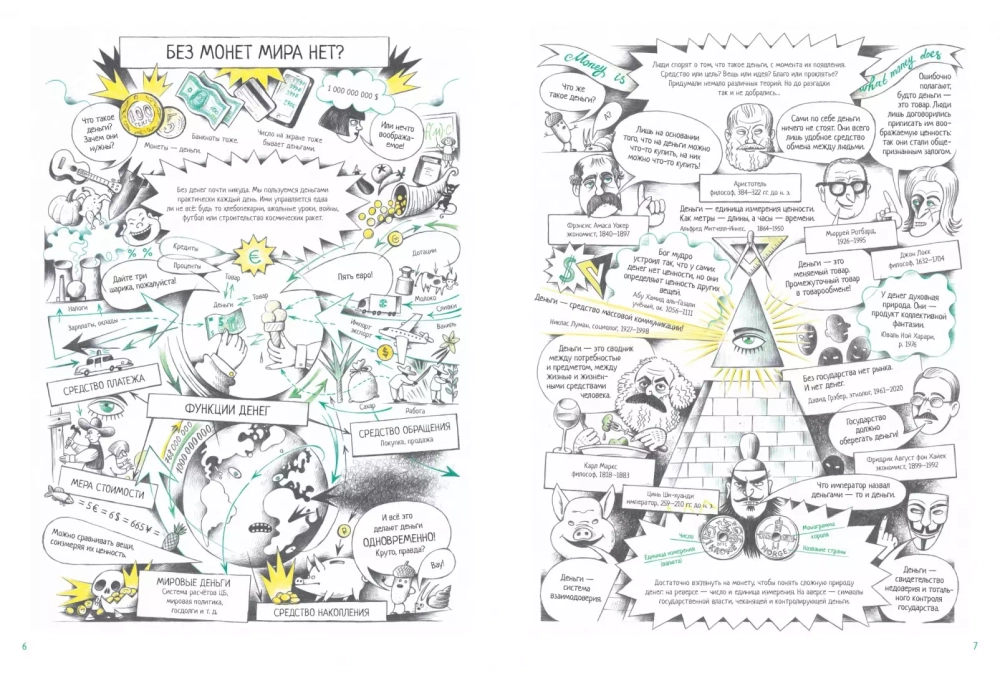 БЕЗ МОНЕТ МИРА НЕТ?
Что такое
деньги?
Зачем они
нужны?
100
5
Монеты — деньги.
Банкноты тоже.
Число на экране тоже
бывает деньгами.
1 000 000 000 $
Или нечто
вообража-
емое!
Без денег почти никуда. Мы пользуемся деньгами
практически каждый день. Ими управляется едва
ли не всё: будь то хлебопекарни, школьные уроки, войны,
футбол или строительство космических ракет.
% %
Кредиты
Проценты
Дайте три
шарика, пожалуйста!
€
Товар
Деньги
Товар
Пять евро!
Дотации
Молоко
Сливки
Импорт
экспорт
Ваниль
$
Налоги
Зарплаты, оклады
Сахар
Работа
СРЕДСТВО ПЛАТЕЖА
ФУНКЦИИ ДЕНЕГ
СРЕДСТВО ОБРАЩЕНИЯ
Покупка, продажа
1000 000 000
МЕРА СТОИМОСТИ
= 5 € = 6 $ = 665 ¥ =
Можно сравнивать вещи,
соизмеряя их ценность.
И всё это
делают деньги
ОДНОВРЕМЕННО!
Круто, правда?
Вау!
МИРОВЫЕ ДЕНЬГИ
Система расчётов ЦБ,
мировая политика,
госдолги и т. д.
СРЕДСТВО НАКОПЛЕНИЯ
6
Money is
what money does
Люди спорят о том, что такое деньги, с момента их появления.
Средство или цель? Вещь или идея? Благо или проклятье?
Придумали немало различных теорий. Но до разгадки
так и не добрались...
Что же
такое деньги?
А?
Лишь на основании
того, что на деньги можно
что-то купить, на них
можно что-то купить!
Сами по себе деньги
ничего не стоят. Они всего
лишь удобное средство
обмена между людьми.
Ошибочно
полагают,
будто деньги —
это товар. Люди
лишь договорились
приписать им воо-
бражаемую ценность:
так они стали обще-
признанным залогом.
Аристотель
философ, 384–322 гг. до н. э.
Фрэнсис Амаса Уокер
экономист, 1840–1897
Деньги — единица измерения ценности.
Как метры — длины, а часы — времени.
Альфред Митчелл-Иннес, 1864–1950
Мюррей Ротбард,
1926–1995
Джон Локк
философ, 1632–1704
$
Бог мудро
устроил так, что у самих
денег нет ценности, но они
определяют ценность других
вещей.
Абу Хамид аль-Газали
учёный, ок. 1056–1111
Деньги — это
меняемый товар.
Промежуточный товар
в товарообмене!
У денег духовная
природа. Они —
продукт коллективной
фантазии.
Юваль Ной Харари,
р. 1976
Деньги — средство массовой коммуникации!
Никлас Луман, социолог, 1927–1998
Деньги — это сводник
между потребностью
и предметом, между
жизнью и жизнен-
ными средствами
человека.
Без государства нет рынка.
И нет денег.
Дэвид Грэбер, этнолог, 1961–2020
Государство
должно
оберегать деньги!
Карл Маркс
философ, 1818–1883
Фридрих Август фон Хайек
экономист, 1899–1992
Цинь Ши-хуанди
император, 259–210 гг. до н. э.
Что император назвал
деньгами — то и деньги.
Число
Единица измерения
(валюта)
NORGE
Монограмма
короля
Название страны
Деньги —
система
взаимодоверия.
Достаточно взглянуть на монету, чтобы понять сложную природу
денег: на реверсе — число и единица измерения. На аверсе — символы
государственной власти, чеканящей и контролирующей деньги.
Деньги —
свидетельство
недоверия и тоталь-
ного контроля
государства.
7